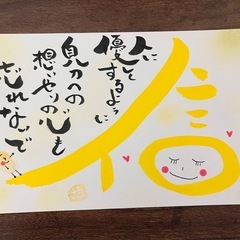 信
人に
優しくするように
自分への
想いやりの心も
忘れないで